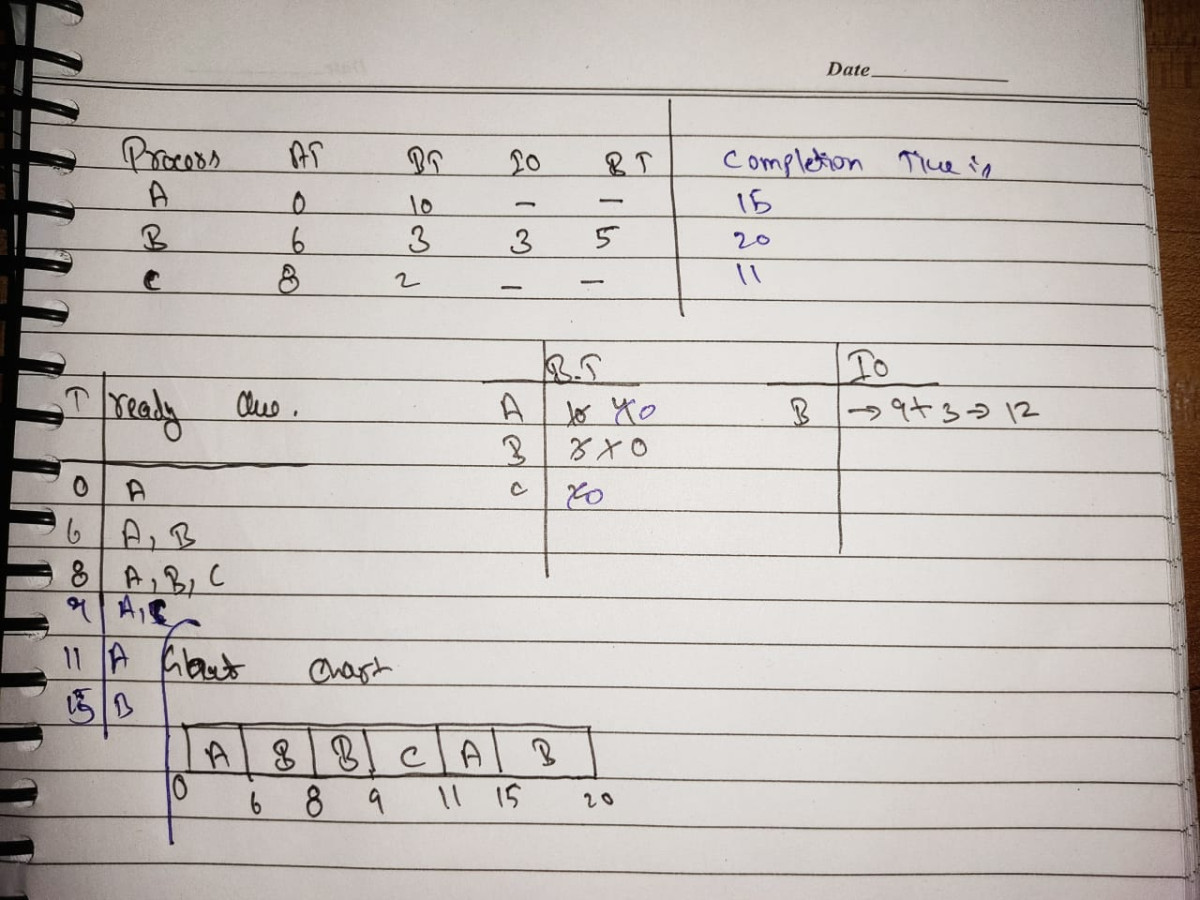 Date
Process AT BT IO BT Completion Time is
A 0 10 - - 15
B 6 3 3 5 20
C 8 2 - - 11
B.T IO
T ready Que. A 10 4 0 B → 9 + 3 → 12
B 3 1 0
C 2 0
0 A
6 A, B
8 A, B, C
9 A, C
11 A Gantt Chart
15 B
A B B C A B
0 6 8 9 11 15 20